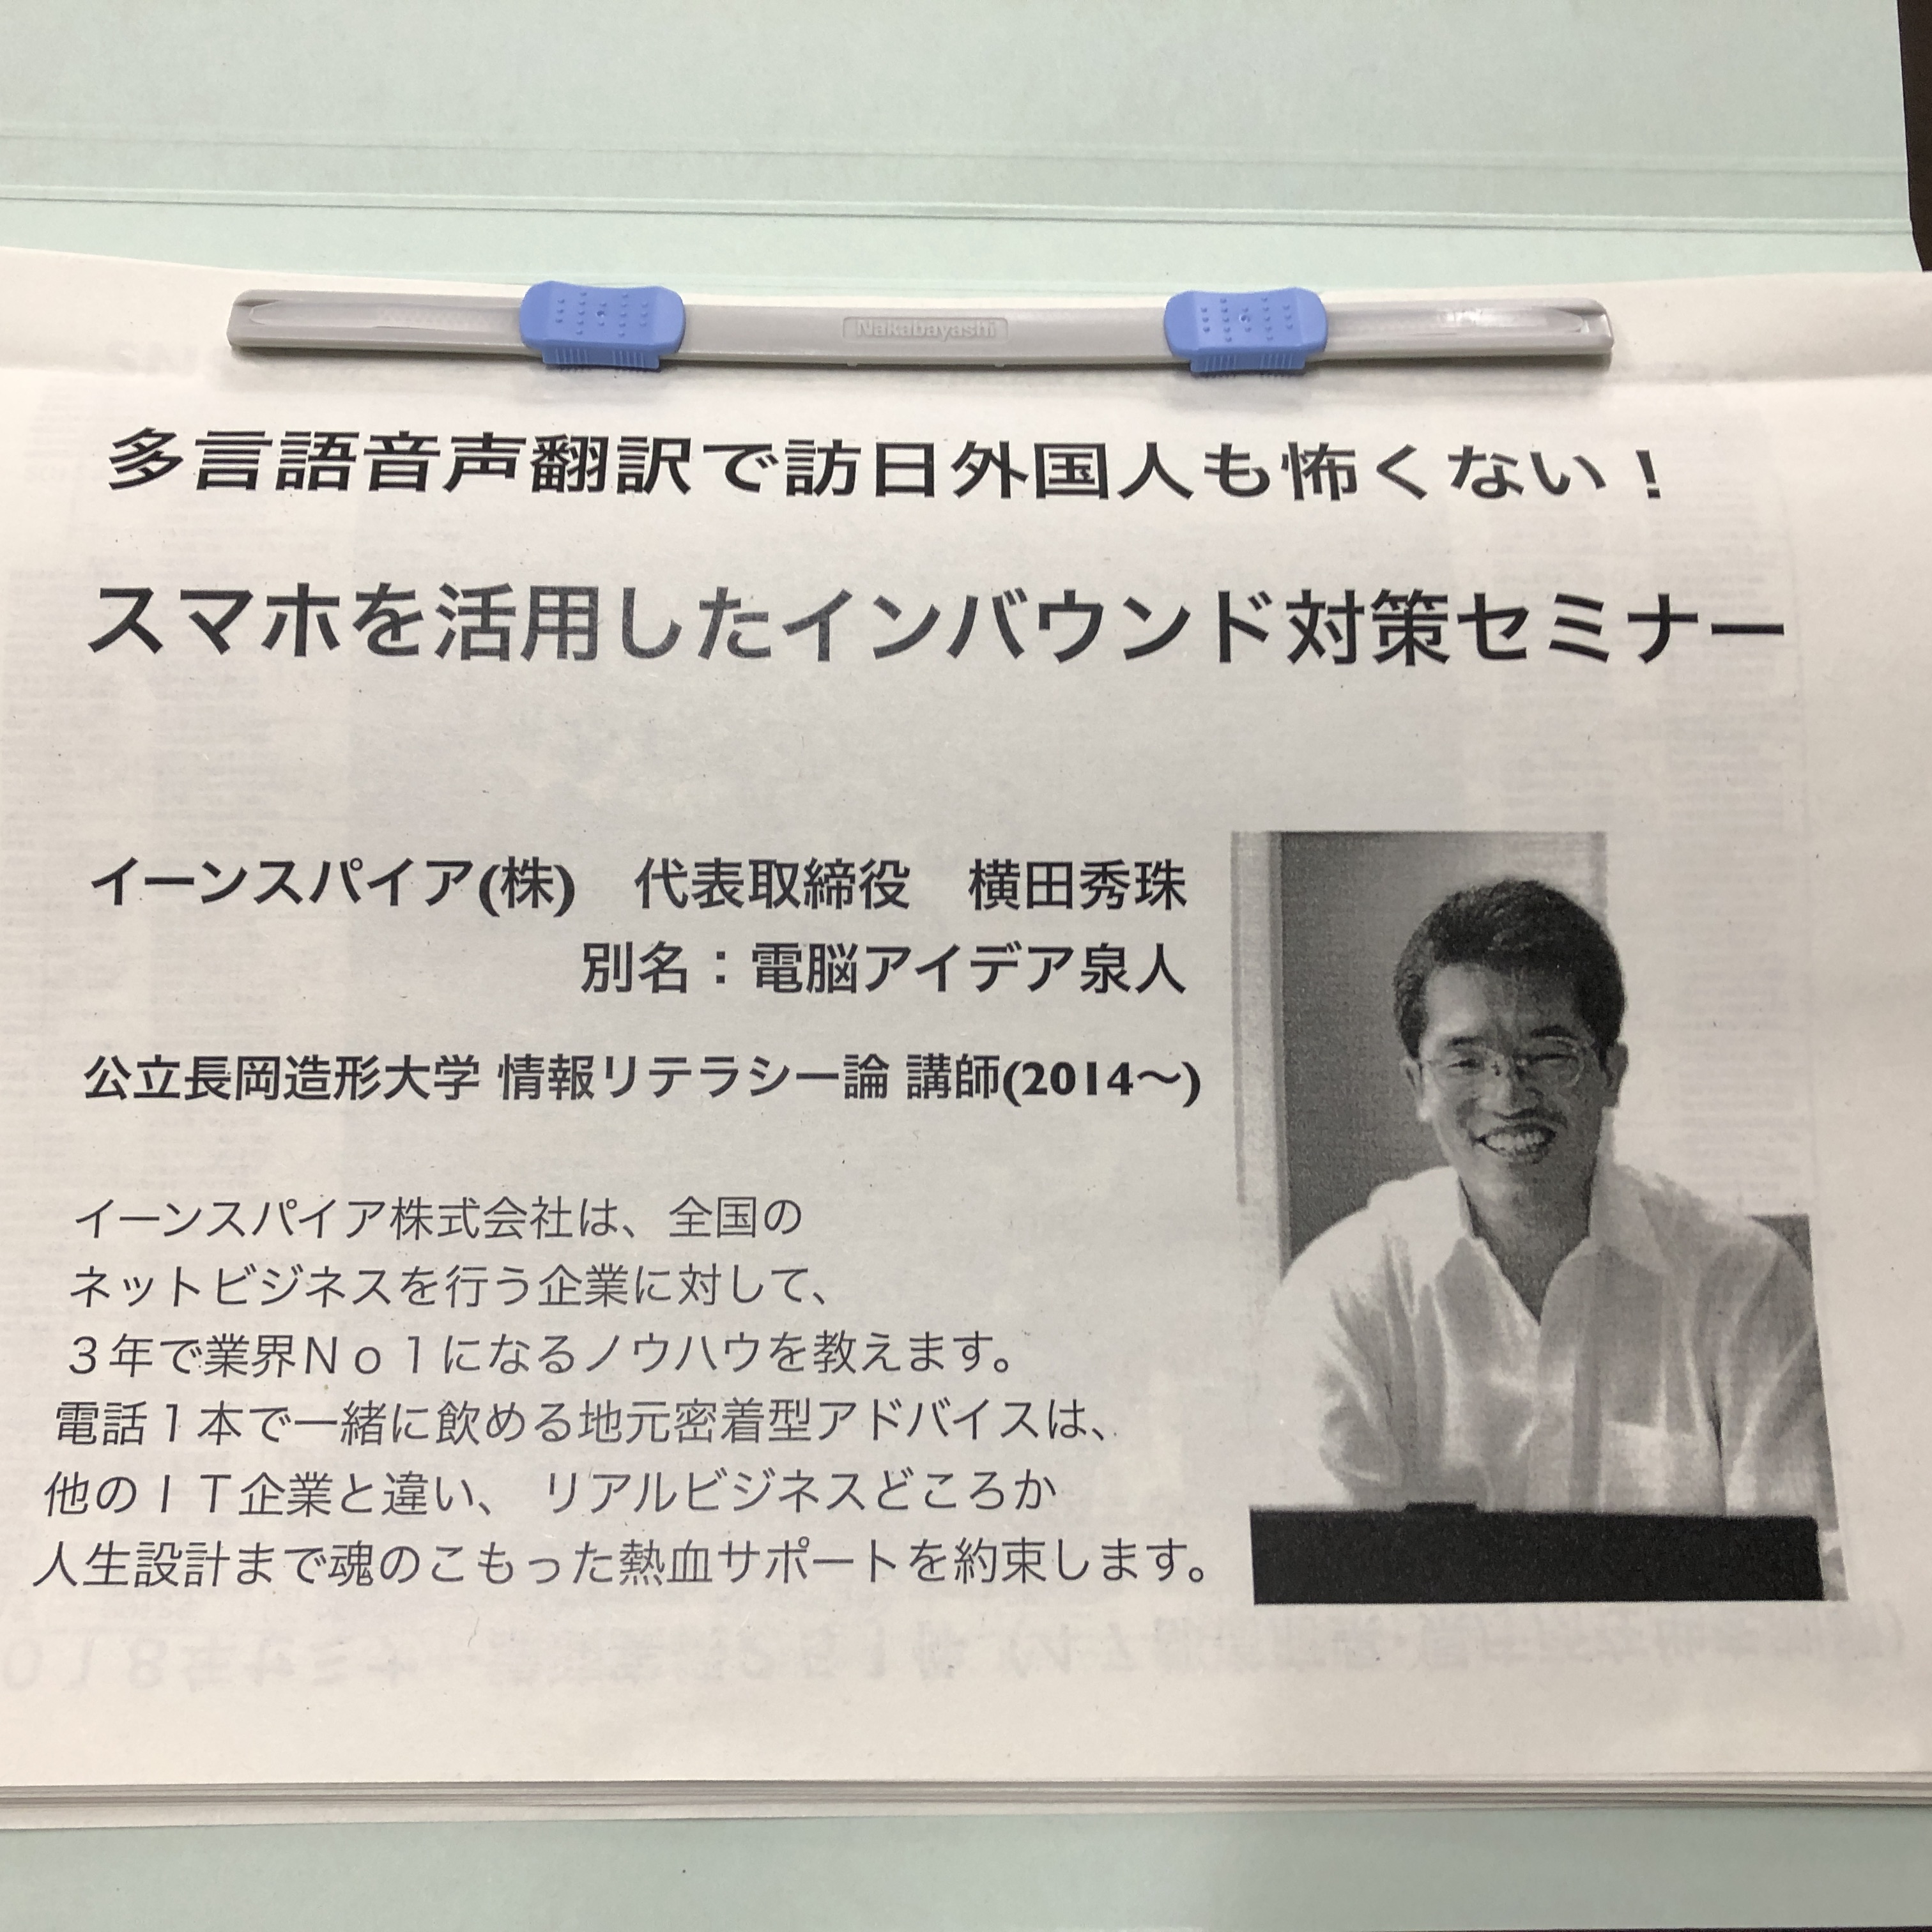 Nakabayashi
多言語音声翻訳で訪日外国人も怖くない！
スマホを活用したインバウンド対策セミナー
イーンスパイア(株)　代表取締役　横田秀珠
別名：電脳アイデア泉人
公立長岡造形大学 情報リテラシー論 講師(2014〜)
イーンスパイア株式会社は、全国の
ネットビジネスを行う企業に対して、
３年で業界Ｎｏ１になるノウハウを教えます。
電話１本で一緒に飲める地元密着型アドバイスは、
他のＩＴ企業と違い、 リアルビジネスどころか
人生設計まで魂のこもった熱血サポートを約束します。